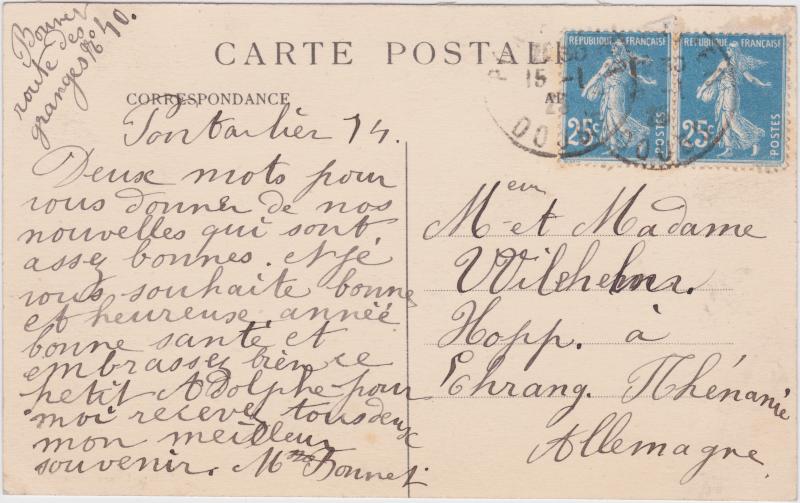 Bonnet
route des
granges No 40.
CARTE POSTALE
CORRESPONDANCE
REPUBLIQUE FRANÇAISE
25c
POSTES
REPUBLIQUE FRANÇAISE
25c
POSTES
15 -1
DOUBS
Pontarlier 14.
Deux mots pour
vous donner de nos
nouvelles qui sont
assez bonnes. et je
vous souhaite bonne
et heureuse année
bonne santé et
embrassez bien ce
petit Adolphe pour
moi recevez tous deux
mon meilleur
souvenir. Mme Bonnet
Meur et Madame
Wilchelm.
Hopp. à
Ehrang. Rhénanie
Allemagne.